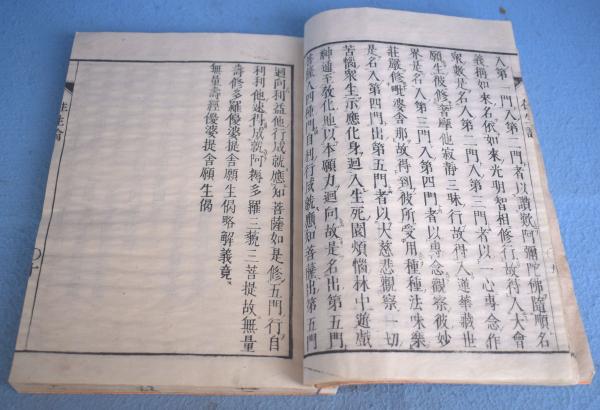 入第一門入第二門者以讚歎阿彌陀佛隨順名
義稱如來名依如來光明智相修行故得入大會
衆數是名入第二門入第三門者以一心專念作
願生彼修奢摩他寂靜三昧行故得入蓮華藏世
界是名入第三門入第四門者以專念觀察彼妙
莊嚴修毗婆舍那故得到彼所受用種種法味樂
是名入第四門出第五門者以大慈悲觀察一切
苦惱衆生示應化身迴入生死園煩惱林中遊戲
神通至教化地以本願力迴向故是名出第五門
菩薩入四種門自利行成就應知菩薩出第五門
迴向利益他行成就應知菩薩如是修五門行自
利利他速得成就阿耨多羅三藐三菩提故無量
壽修多羅優婆提舍願生偈略解義竟
無量壽經優婆提舍願生偈